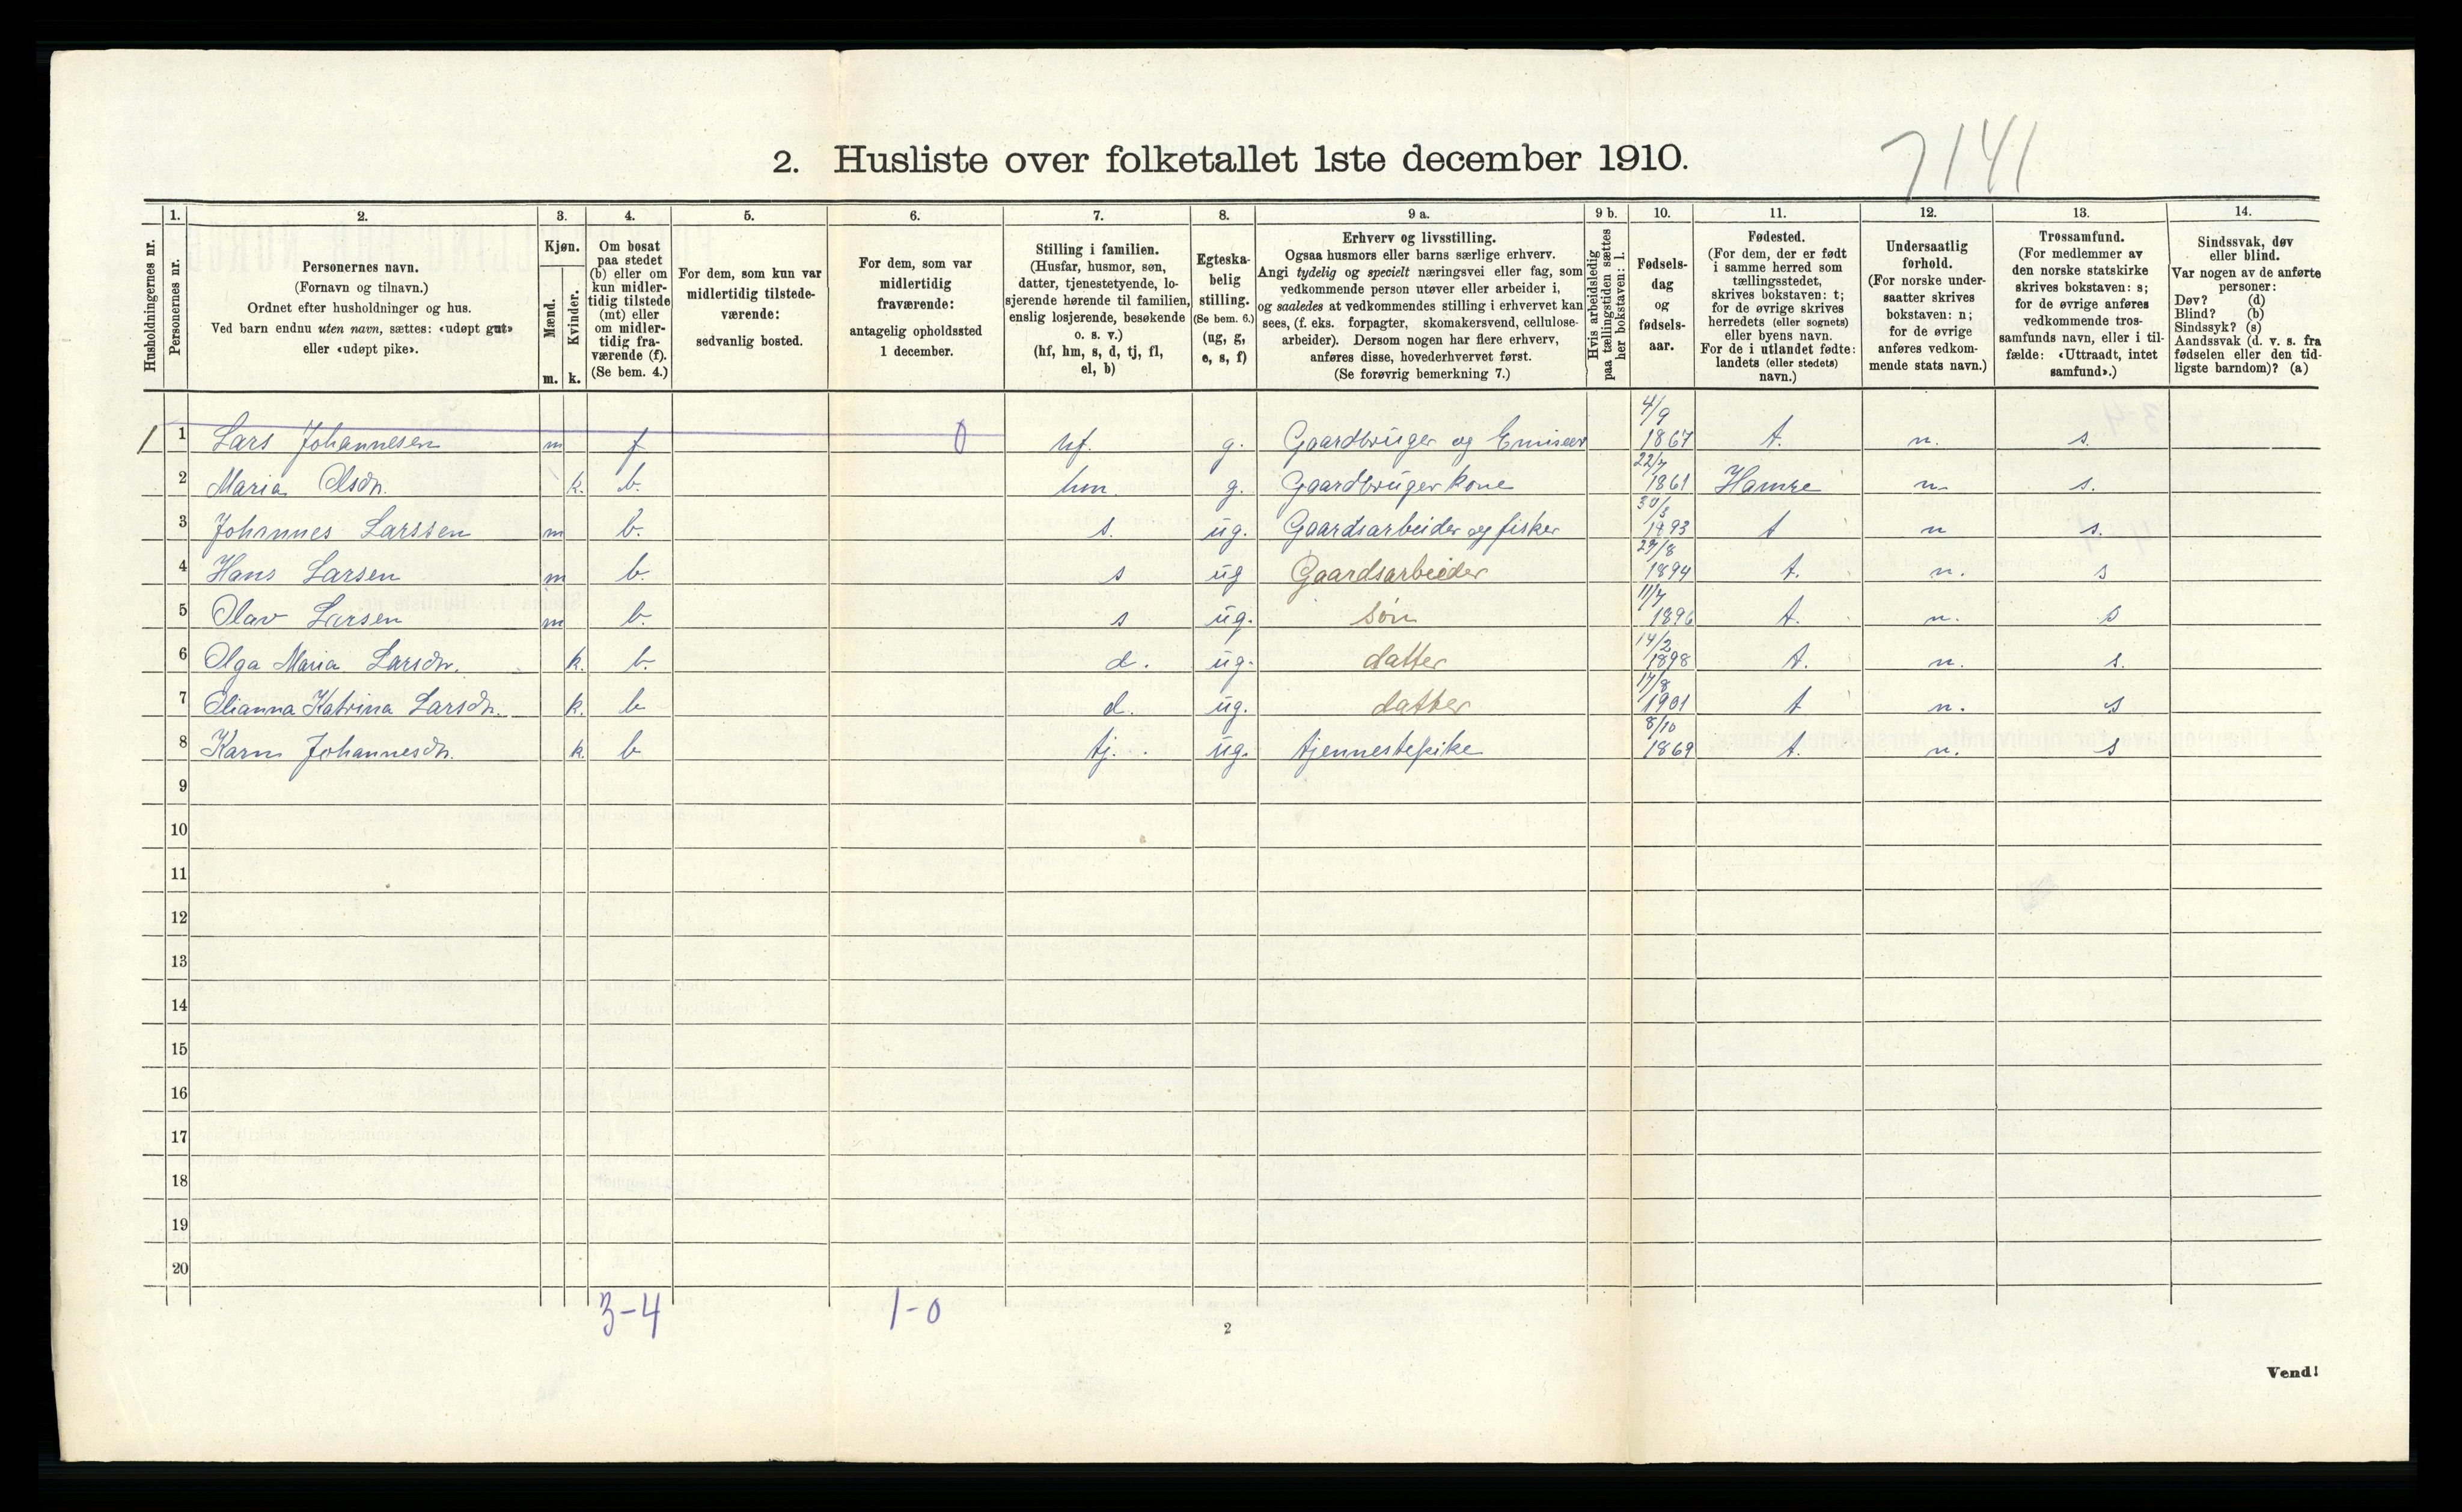 7141
2. Husliste over folketallet 1ste december 1910.
1. 2. 3. 4. 5. 6. 7. 8. 9 a. 9 b. 10. 11. 12. 13. 14.
Husholdningernes nr.
Personernes nr.
Personernes navn.
(Fornavn og tilnavn.)
Ordnet efter husholdninger og hus.
Ved barn endnu uten navn, sættes: «udøpt gut»
eller «udøpt pike».
Kjøn.
Mænd.
Kvinder.
m. k.
Om bosat
paa stedet
(b) eller om
kun midler-
tidig tilstede
(mt) eller
om midler-
tidig fra-
værende (f).
(Se bem. 4.)
For dem, som kun var
midlertidig tilstede-
værende:
sedvanlig bosted.
For dem, som var
midlertidig
fraværende:
antagelig opholdssted
1 december.
Stilling i familien.
(Husfar, husmor, søn,
datter, tjenestetyende, lo-
sjerende hørende til familien,
enslig losjerende, besøkende
o. s. v.)
(hf, hm, s, d, tj, fl,
el, b)
Egteska-
belig
stilling.
(Se bem. 6.)
(ug, g,
e, s, f)
Erhverv og livsstilling.
Ogsaa husmors eller barns særlige erhverv.
Angi tydelig og specielt næringsvei eller fag, som
vedkommende person utøver eller arbeider i,
og saaledes at vedkommendes stilling i erhvervet kan
sees, (f. eks. forpagter, skomakersvend, cellulose-
arbeider). Dersom nogen har flere erhverv,
anføres disse, hovederhvervet først.
(Se forøvrig bemerkning 7.)
Hvis arbeidsledig
paa tællingstiden sættes
her bokstaven: l.
Fødsels-
dag
og
fødsels-
aar.
Fødested.
(For dem, der er født
i samme herred som
tællingsstedet,
skrives bokstaven: t;
for de øvrige skrives
herredets (eller sognets)
eller byens navn.
For de i utlandet fødte:
landets (eller stedets)
navn.)
Undersaatlig
forhold.
(For norske under-
saatter skrives
bokstaven: n;
for de øvrige
anføres vedkom-
mende stats navn.)
Trossamfund.
(For medlemmer av
den norske statskirke
skrives bokstaven: s;
for de øvrige anføres
vedkommende tros-
samfunds navn, eller i til-
fælde: «Uttraadt, intet
samfund».)
Sindssvak, døv
eller blind.
Var nogen av de anførte
personer:
Døv? (d)
Blind? (b)
Sindssyk? (s)
Aandssvak (d. v. s. fra
fødselen eller den tid-
ligste barndom)? (a)
1 1 Lars Johannesen m f 0 hf. g. Gaardbruger og Emisær 4/9 1867 t. n. s.
2 Maria Olsdn. k. b. hm. g. Gaardbrugerkone 22/7 1861 Hamre n s.
3 Johannes Larssen m b. s. ug. Gaardsarbeider og fisker 1893 t n s.
4 Hans Larsen m b. s ug Gaardsarbeider 1894 t. n. s
5 Olav Larsen m b. s ug. søn 11/7 1896 t. n. s
6 Olga Maria Larsdn. k. b. d. ug. datter 14/2 1898 t. n. s.
7 Elianna Katrina Larsdn. k. b d. ug. datter 17/8 1901 t n. s
8 Karn Johannesdn. k. b tj. ug. tjennestepike 8/10 1869 t. n. s
9
10
11
12
13
14
15
16
17
18
19
20
3-4 1-0
2
Vend!